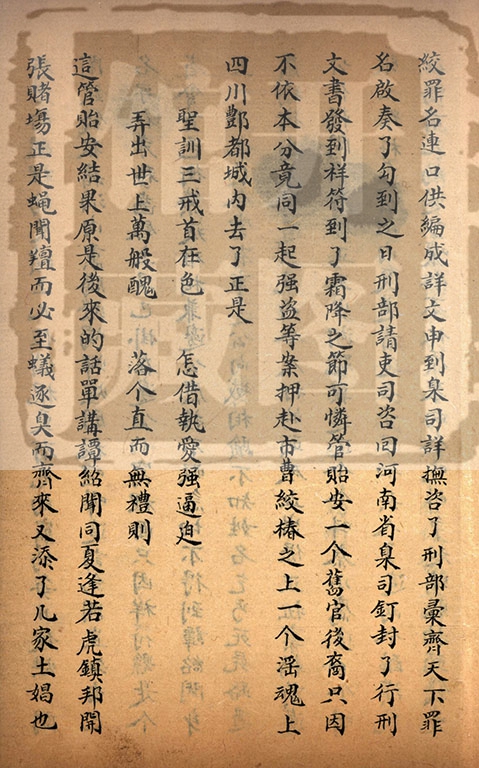 絞罪名連口供編成詳文申到臬司詳撫咨了刑部彙齊天下罪
名啟奏了勾到之日刑部請吏司咨回河南省臬司釘封了行刑
文書發到祥符到了霜降之節可憐管貽安一个舊官後裔只因
不依本分竟同一起强盗等案押赴市曹絞樁之上一个淫魂上
四川酆都城内去了正是
聖訓三戒首在色 怎借執愛强逼迫
弄出世上萬般醜 落个直而無禮則
這管貽安結果原是後來的話單講譚紹聞同夏逢若虎鎮邦開
張賭塲正是蝇聞羶而必至蟻逐臭而齊來又添了几家土娼也